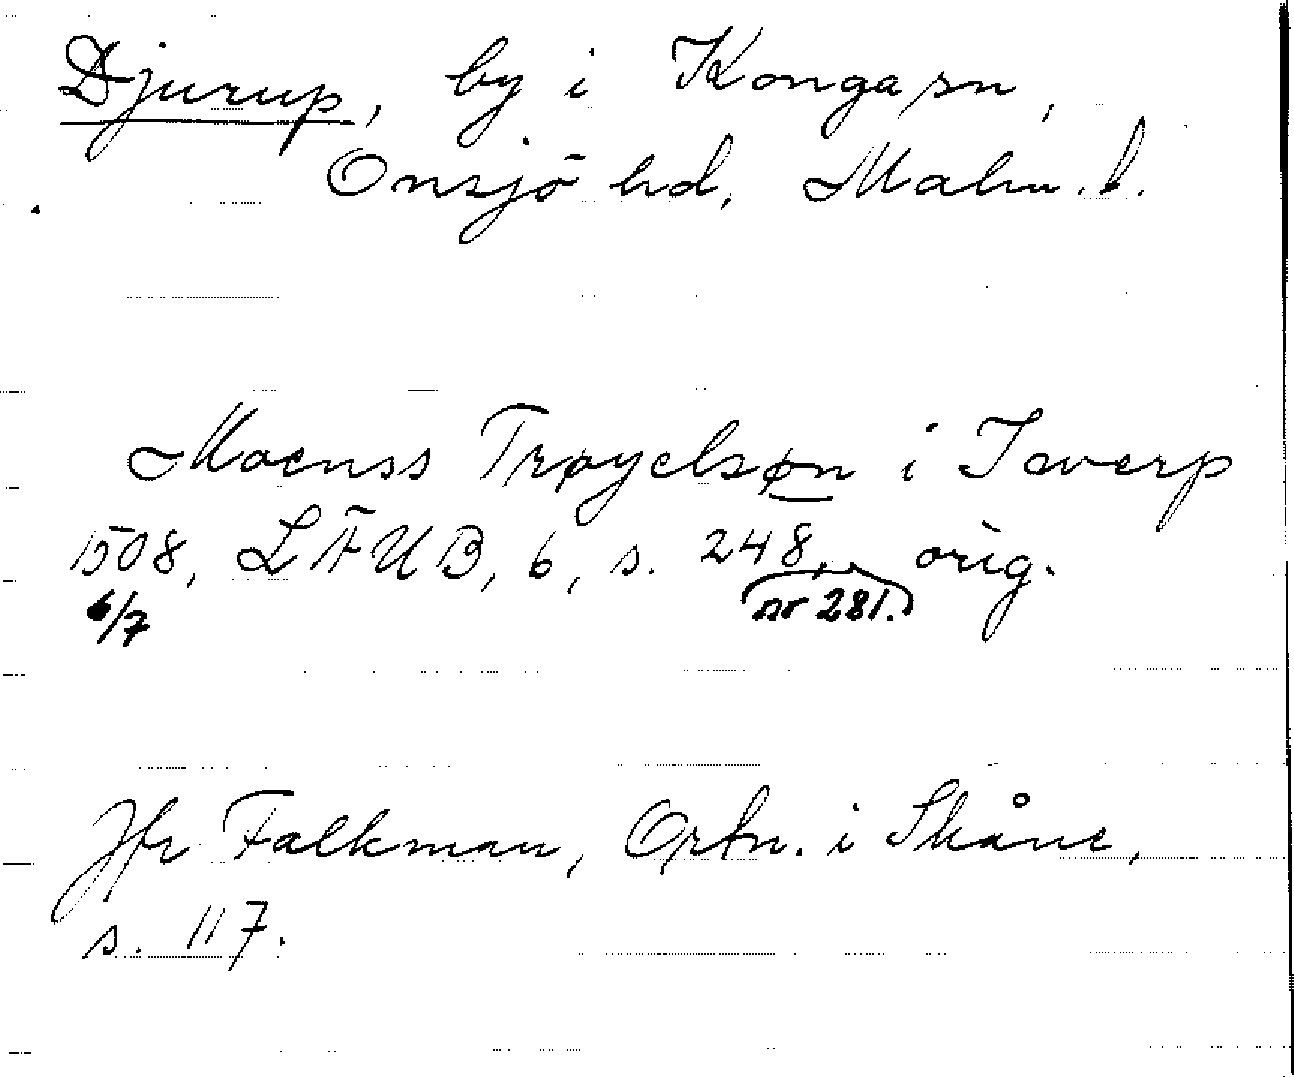 Djurup, by i Konga sn,
Onsjö hd, Malm. l.
Moenss Trøyelsøn i Iwerp
1508, LÄUB, 6, s. 248, orig.
6/7 nr 281.
Jfr Falkman, Ortn. i Skåne,
s. 117.